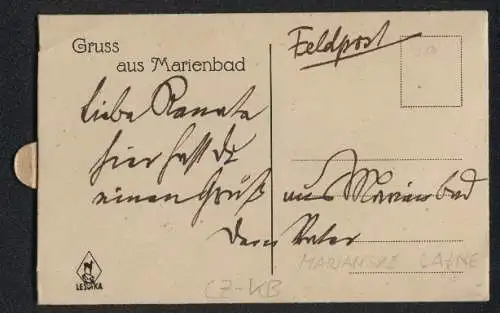 Gruss
aus Marienbad
Feldpost
Liebe Renate
hier hast du
einen Gruß aus Marienbad
Dein Vater
MARIANSKE LAZNE
CZ-KB
LESTKA